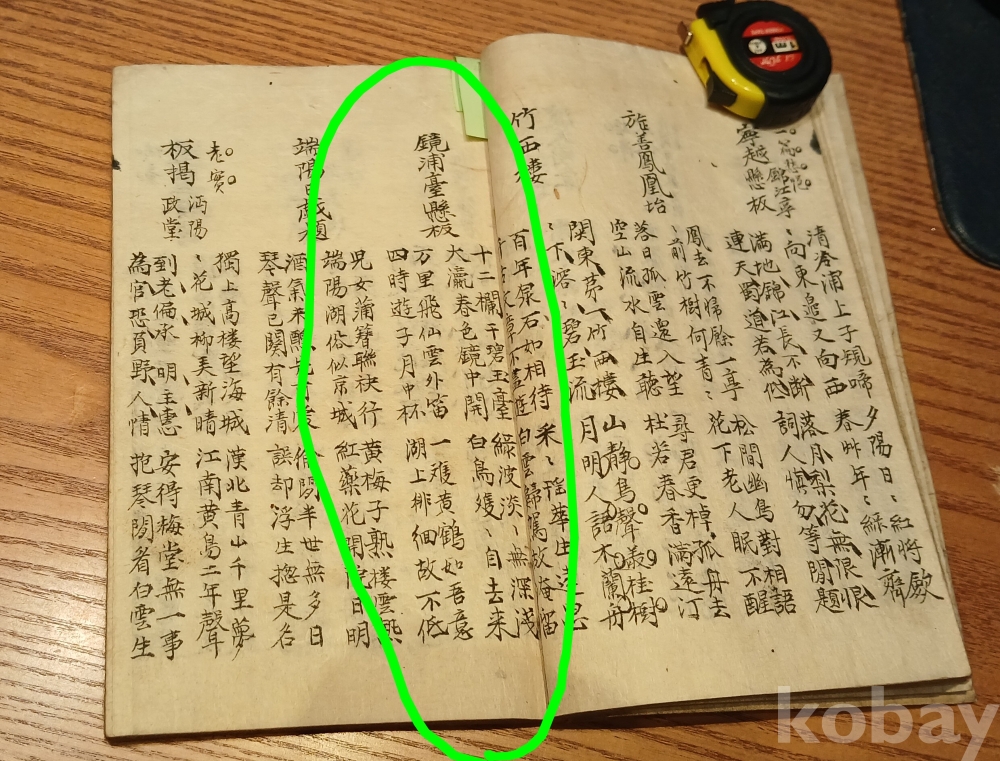 錦江亭
寧越懸板
清冷浦上子規啼 夕陽日﹅紅將歛
﹅向東邉又向西 春昨年﹅綠漸齊
滿地錦江長不断 落月梨花無限恨
連天蜀道若為低 詞人愼勿等閒題
旌善鳳凰坮
鳳去不帰餘一亭 松間幽鳥對相語
﹅前竹樹何青﹅ 花下老人眠不醒
落日孤雲還入望 尋君更棹孤舟去
空山流水自生聴 杜若春香滿遠汀
竹西楼
関東苐一竹西楼 山静鳥聲叢桂樹
﹅下溶﹅碧玉流 月明人語木蘭舟
百年泉石如相待 采﹅瑤華生遠思
白雲歸駕故淹留
鏡浦臺懸板
十二欄干碧玉臺 綠波淡﹅無深浅
大瀛春色鏡中開 白鳥雙﹅自去来
万里飛仙雲外笛 一隻黄鶴如吾意
四時遊子月中杯 湖上徘徊故不低
端陽日戱題
兒女蒲簪聯袂行 黄梅子熟楼雲熱
端陽湖俗似京城 紅藥花開院日明
酒氣未 閒半世無多日
琴聲已関有餘清 誤却浮生揔是名
老實
板掲
沔陽
政堂
獨上高楼望海城 漢北青山千里夢
﹅花城柳美新晴 江南黄鳥二年聲
到老偏承明主恵 安得梅堂無一事
為官恐負野人情 抱琴閒看白雲生
1m
kobay